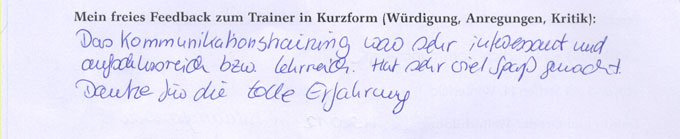 Mein freies Feedback zum Trainer in Kurzform (Würdigung, Anregungen, Kritik):
Das Kommunikationstraining war sehr interessant und
aufschlussreich bzw. lehrreich. Hat sehr viel Spaß gemacht.
Danke für die tolle Erfahrung